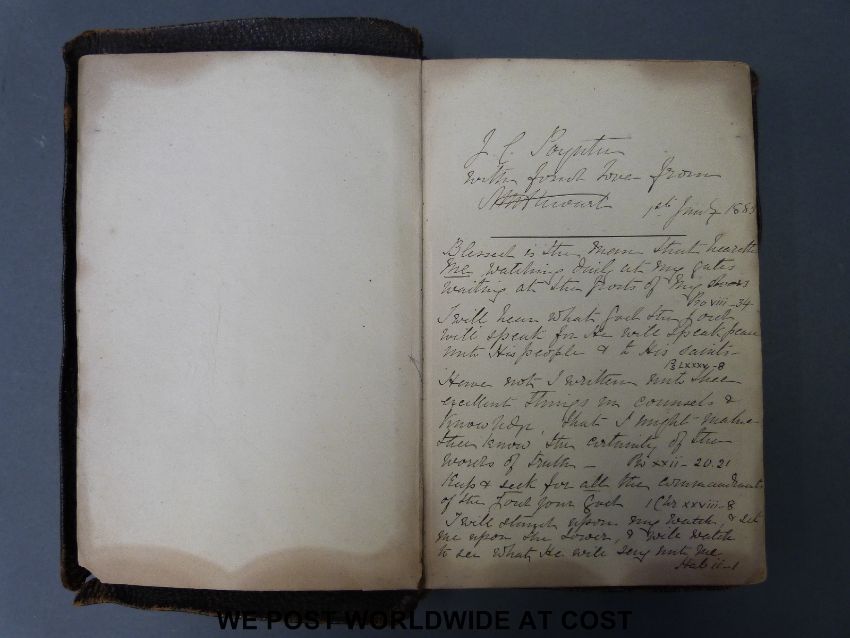 J. C. Poynter
with fond love from
1st Jany 188
Blessed is the man that heareth
me watching daily at my gates
waiting at the posts of my doors
Pro viii - 34
I will hear what God the Lord
will speak for He will speak peace
unto His people & to His saints -
Ps Lxxxv - 8
Have not I written unto thee
excellent things in counsels &
knowledge, that I might make
thee know the certainty of the
words of truth - Pro xxii - 20.21
Keep & seek for all the commandments
of the Lord your God 1 Chr xxviii - 8
I will stand upon my watch, & set
me upon the tower, & will watch
to see what He will say unto me
Hab ii - 1
WE POST WORLDWIDE AT COST